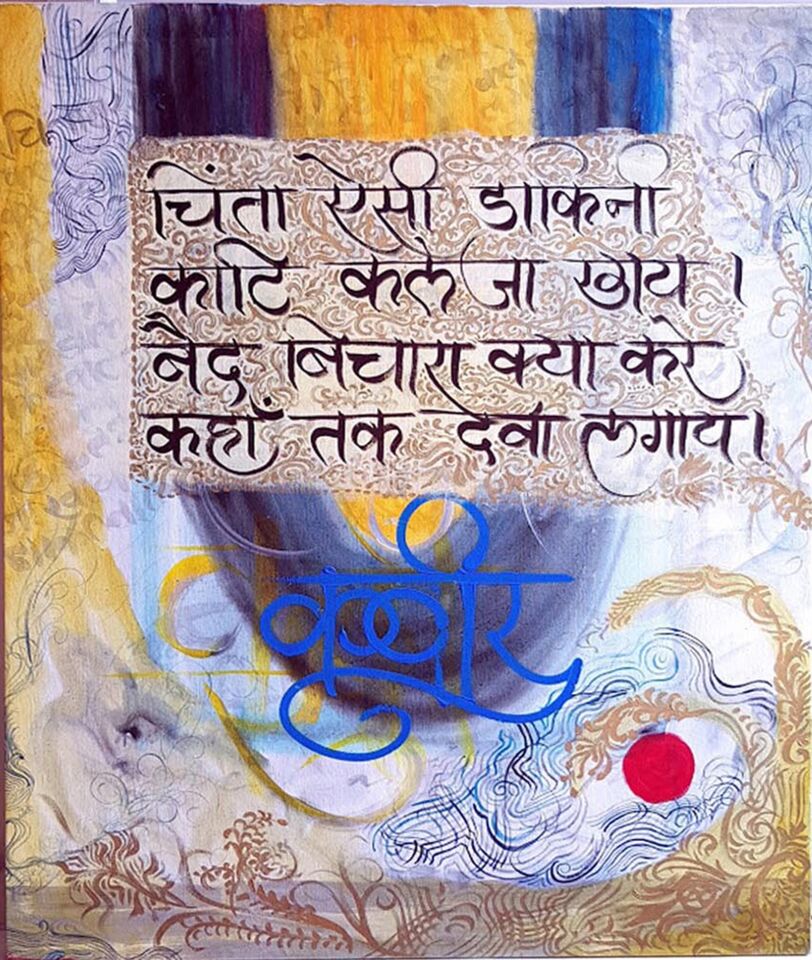 चिंता ऐसी डाकिनी
काटि कलेजा खाय ।
बैद बिचारा क्या करे
कहाँ तक दवा लगाय।
कबीर